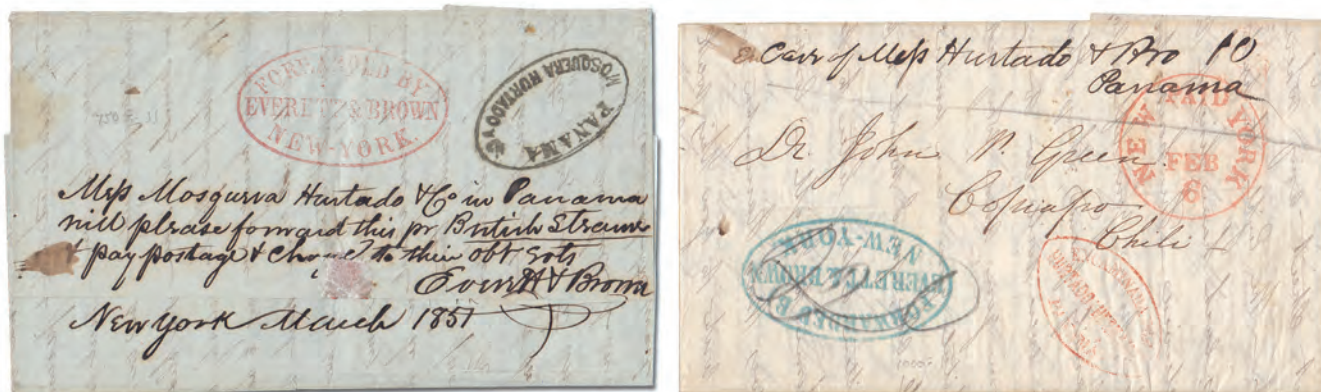 FORWARDED BY
EVERETT & BROWN
NEW-YORK.
MOSQUERA HURTADO
PANAMA
Mess Mosquerva Hurtado & Co in Panama
will please forward this pr British Steamer
& pay postage & charge to their obt svts
Everett & Brown
New York March 1851
Care of Mess Hurtado & Bro 10
Panama
NEW YORK
PAID
FEB
6
Dr. John P. Green
Copiapo
Chili
FORWARDED BY
EVERETT & BROWN
NEW-YORK.
PANAMA